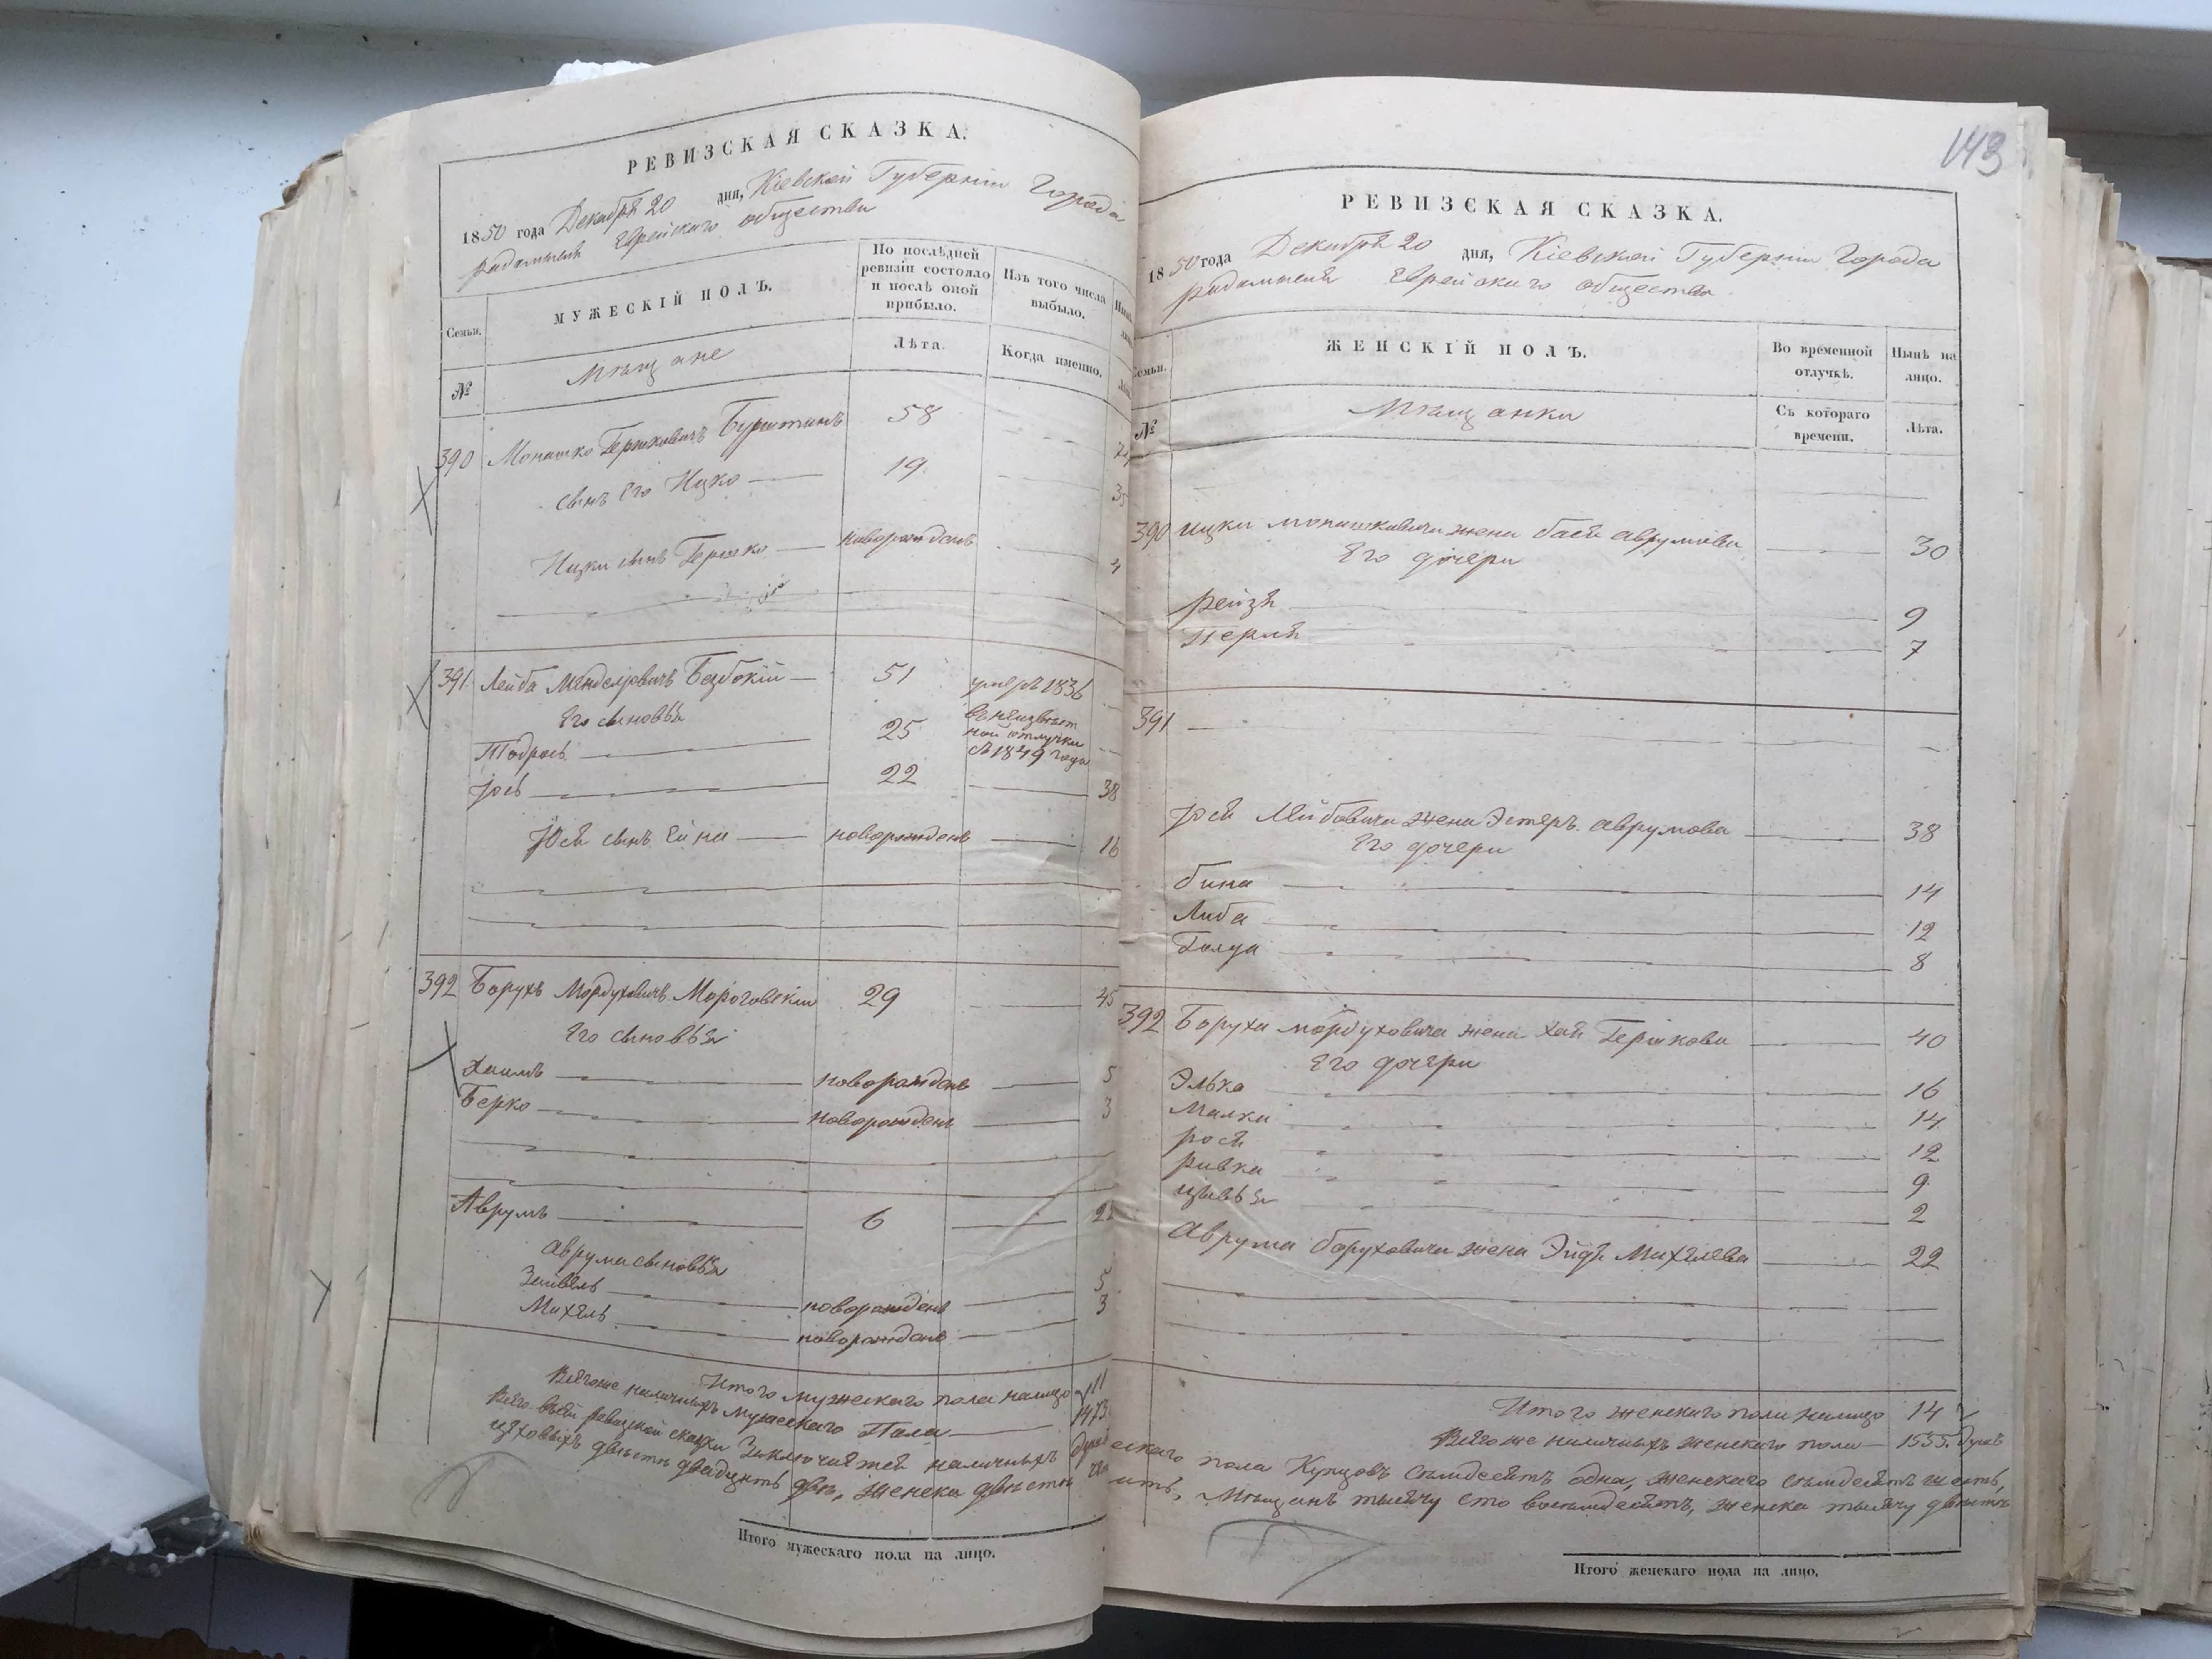 РЕВИЗСКАЯ СКАЗКА.
1850 года Декабря 20 дня, Кіевской Губерніи Города
Радомысля Еврейскаго общества
Семьи.
МУЖЕСКІЙ ПОЛЪ.
По послѣдней ревизіи состояло и послѣ оной прибыло.
Изъ того числа выбыло.
№
Мѣщане
Лѣта.
Когда именно.
390 Мошко Гершковичъ Бурштинъ 58
сынъ Его Ицко 19
Ицки сынъ Гершко новорожденъ 4
391 Лейба Менделровичъ Беzбокій 51 умеръ 1836
Его сыновья
Тодрось 25 въ неизвѣст
ной отлучки
съ 1849 года
Іось 22 38
Іося сынъ новорожденъ 16
392 Борухъ Мордуховичъ Мороговскій 29 45
Его сыновья
Хаимъ новорожденъ 5
Берко новорожденъ 3
Аврумъ 6
Аврума сыновья
Зейвель новорожденъ 5
Михель новорожденъ 3
Итого мужескаго пола налицо 11
Всего же наличныхъ мужескаго Пола 1473
Всего въ сей ревизкой сказки Заключается наличныхъ
цѣховыхъ двѣсти двадцать двѣ, женска двѣсти
Итого мужескаго пола на лицо.
143
РЕВИЗСКАЯ СКАЗКА.
1850 года Декабря 20 дня, Кіевской Губерніи Города
Радомысля Еврейскаго общества
Семьи.
ЖЕНСКІЙ ПОЛЪ.
Во временной отлучкѣ.
Нынѣ на лицо.
№
Мѣщанки
Съ котораго времени.
Лѣта.
390 Ицки Мошковича жена Бася Аврумова 30
Его дочери
Рейзя 9
Перля 7
391
Іося Лейбовича жена Эстеръ Аврумова 38
Его дочери
Бина 14
Либа 12
Голда 8
392 Боруха Мордуховича жена Хая Гершкова 40
Его дочери
Элька 16
Малка 14
Рося 12
Ривка 9
Цывья 2
Аврума Боруховича жена Эйдя Михелева 22
Итого женскаго пола налицо 14
Всего же наличныхъ женскаго пола 1535 душъ
ескаго пола Купцовъ семдесятъ одна, женскаго семдесятъ шесть,
ять, Мѣщанъ тысячу сто восемдесятъ, женска тысячу двѣсти
Итого женскаго пола на лицо.